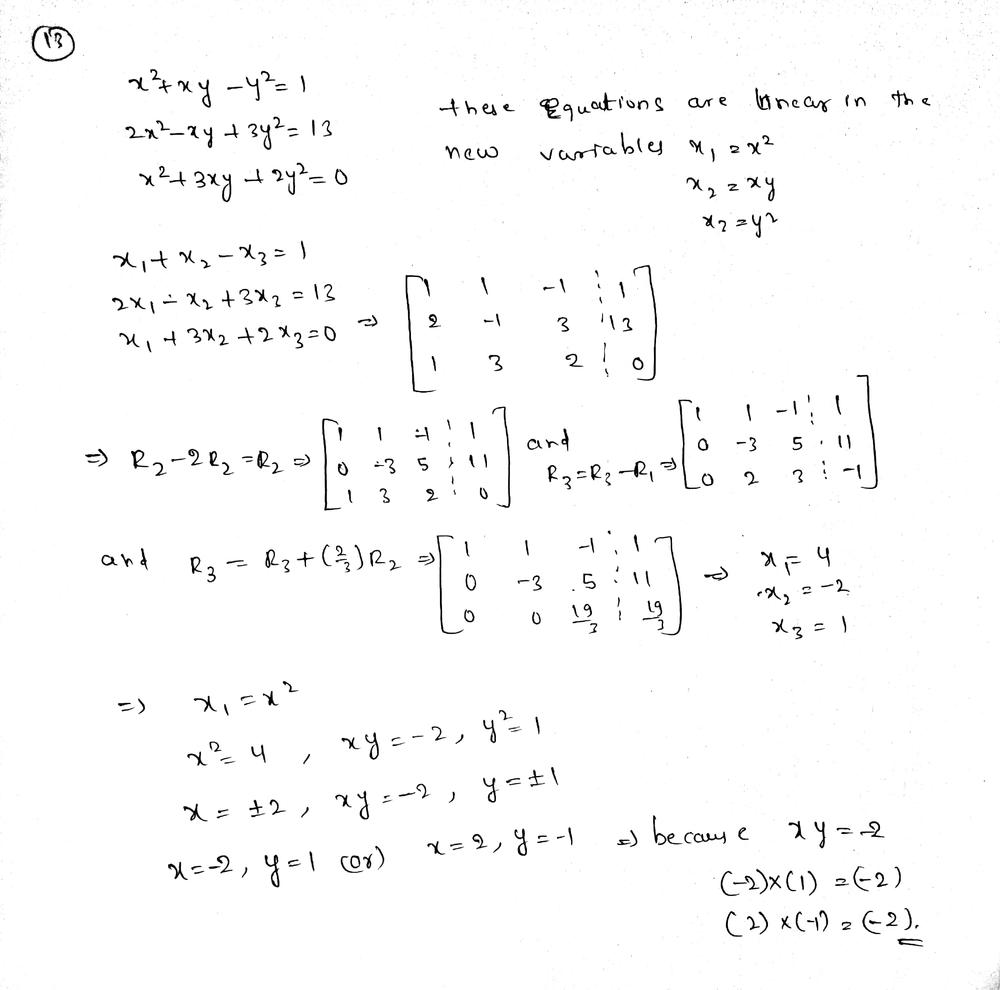 13
x²+xy -y²= 1
2x²-xy + 3y²= 13
x²+ 3xy + 2y²= 0
these Equations are linear in the
new variables x₁ = x²
x₂ = xy
x₃ = y²
x₁+ x₂ - x₃ = 1
2x₁ - x₂ + 3x₃ = 13
x₁ + 3x₂ + 2x₃ = 0
⇒ [1 1 -1 ¦ 1
2 -1 3 ¦ 13
1 3 2 ¦ 0]
⇒ R₂-2R₂ = R₂ ⇒ [1 1 -1 ¦ 1
0 -3 5 ¦ 11
1 3 2 ¦ 0]
and
R₃=R₃-R₁ ⇒ [1 1 -1 ¦ 1
0 -3 5 ¦ 11
0 2 3 ¦ -1]
and R₃ = R₃+(2/3)R₂ ⇒ [1 1 -1 ¦ 1
0 -3 5 ¦ 11
0 0 19/3 ¦ 19/3]
⇒ x₁= 4
x₂ = -2
x₃ = 1
⇒ x₁ = x²
x²= 4 , xy = -2, y²= 1
x = ±2 , xy = -2 , y = ±1
x=-2, y=1 (or) x=2, y=-1 ⇒ because xy = -2
(-2)×(1) = (-2)
(2) ×(-1) = (-2).